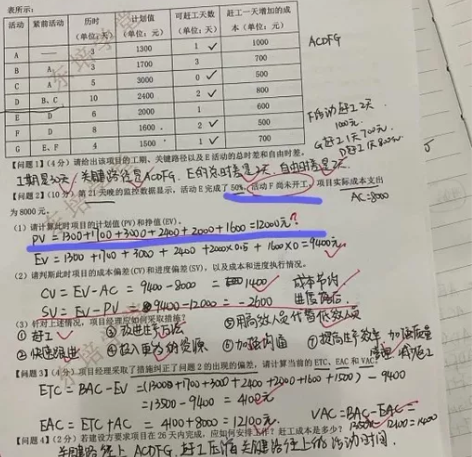 表所示:
活动 紧前活动 历时(单位:天) 计划值(单位:元) 可赶工天数(单位:天) 赶工一天增加的成本(单位:元)
A — 3 1300 1 ✓ 1000
B A 3 1700 3 700
C A 5 3000 0 ✓ 500
D B、C 10 2400 2 ✓ 800
E D 6 2000 1 600
F D 8 1600 2 ✓ 500
G E、F 4 1500 1 ✓ 700
ACDFG
F活动赶工2天
1000元
G赶工1天700元
D赶工1天800元
【问题1】(4分)请给出该项目的工期、关键路径以及E活动的总时差和自由时差。
工期是30天 关键路径是ACDFG. E的总时差是2天. 自由时差是2天.
【问题2】(10分)第21天晚的监控数据显示,活动E完成了50%,活动F尚未开工,项目实际成本支出
为8000元。
AC=8000
(1)请计算此时项目的计划值(PV)和挣值(EV)。
PV=1300+1700+3000+2400+2000+1600=12000元?
EV=1300+1700+3000+2400+2000×0.5+1600×0=9400元
(2)请判断此时项目的成本偏差(CV)和进度偏差(SV),以及成本和进度执行情况。
CV=EV-AC=9400-8000=1400 成本节约
SV=EV-PV=9400-12000=-2600 进度落后
(3)针对上述情况,项目经理应如何采取措施?
①赶工 ③改进工作方法 ⑤用高效人员代替低效人员
②快速跟进 ④投入更多的资源 ⑥加强沟通 ⑦提高工作效率 加强质量管理
【问题3】(4分)项目经理采取了措施纠正了问题2的出现的偏差,请计算当前的ETC、EAC和VAC。
ETC=BAC-EV=(1300+1700+3000+2400+2000+1600+1500)-9400
=13500-9400=4100元
EAC=ETC+AC=4100+8000=12100元.
VAC=BAC-EAC=
【问题4】(2分)若建设方要求项目在26天内完成,应如何安排赶工?赶工成本是多少?
关键路径上ACDFG,赶工压缩关键路径上的活动时间.